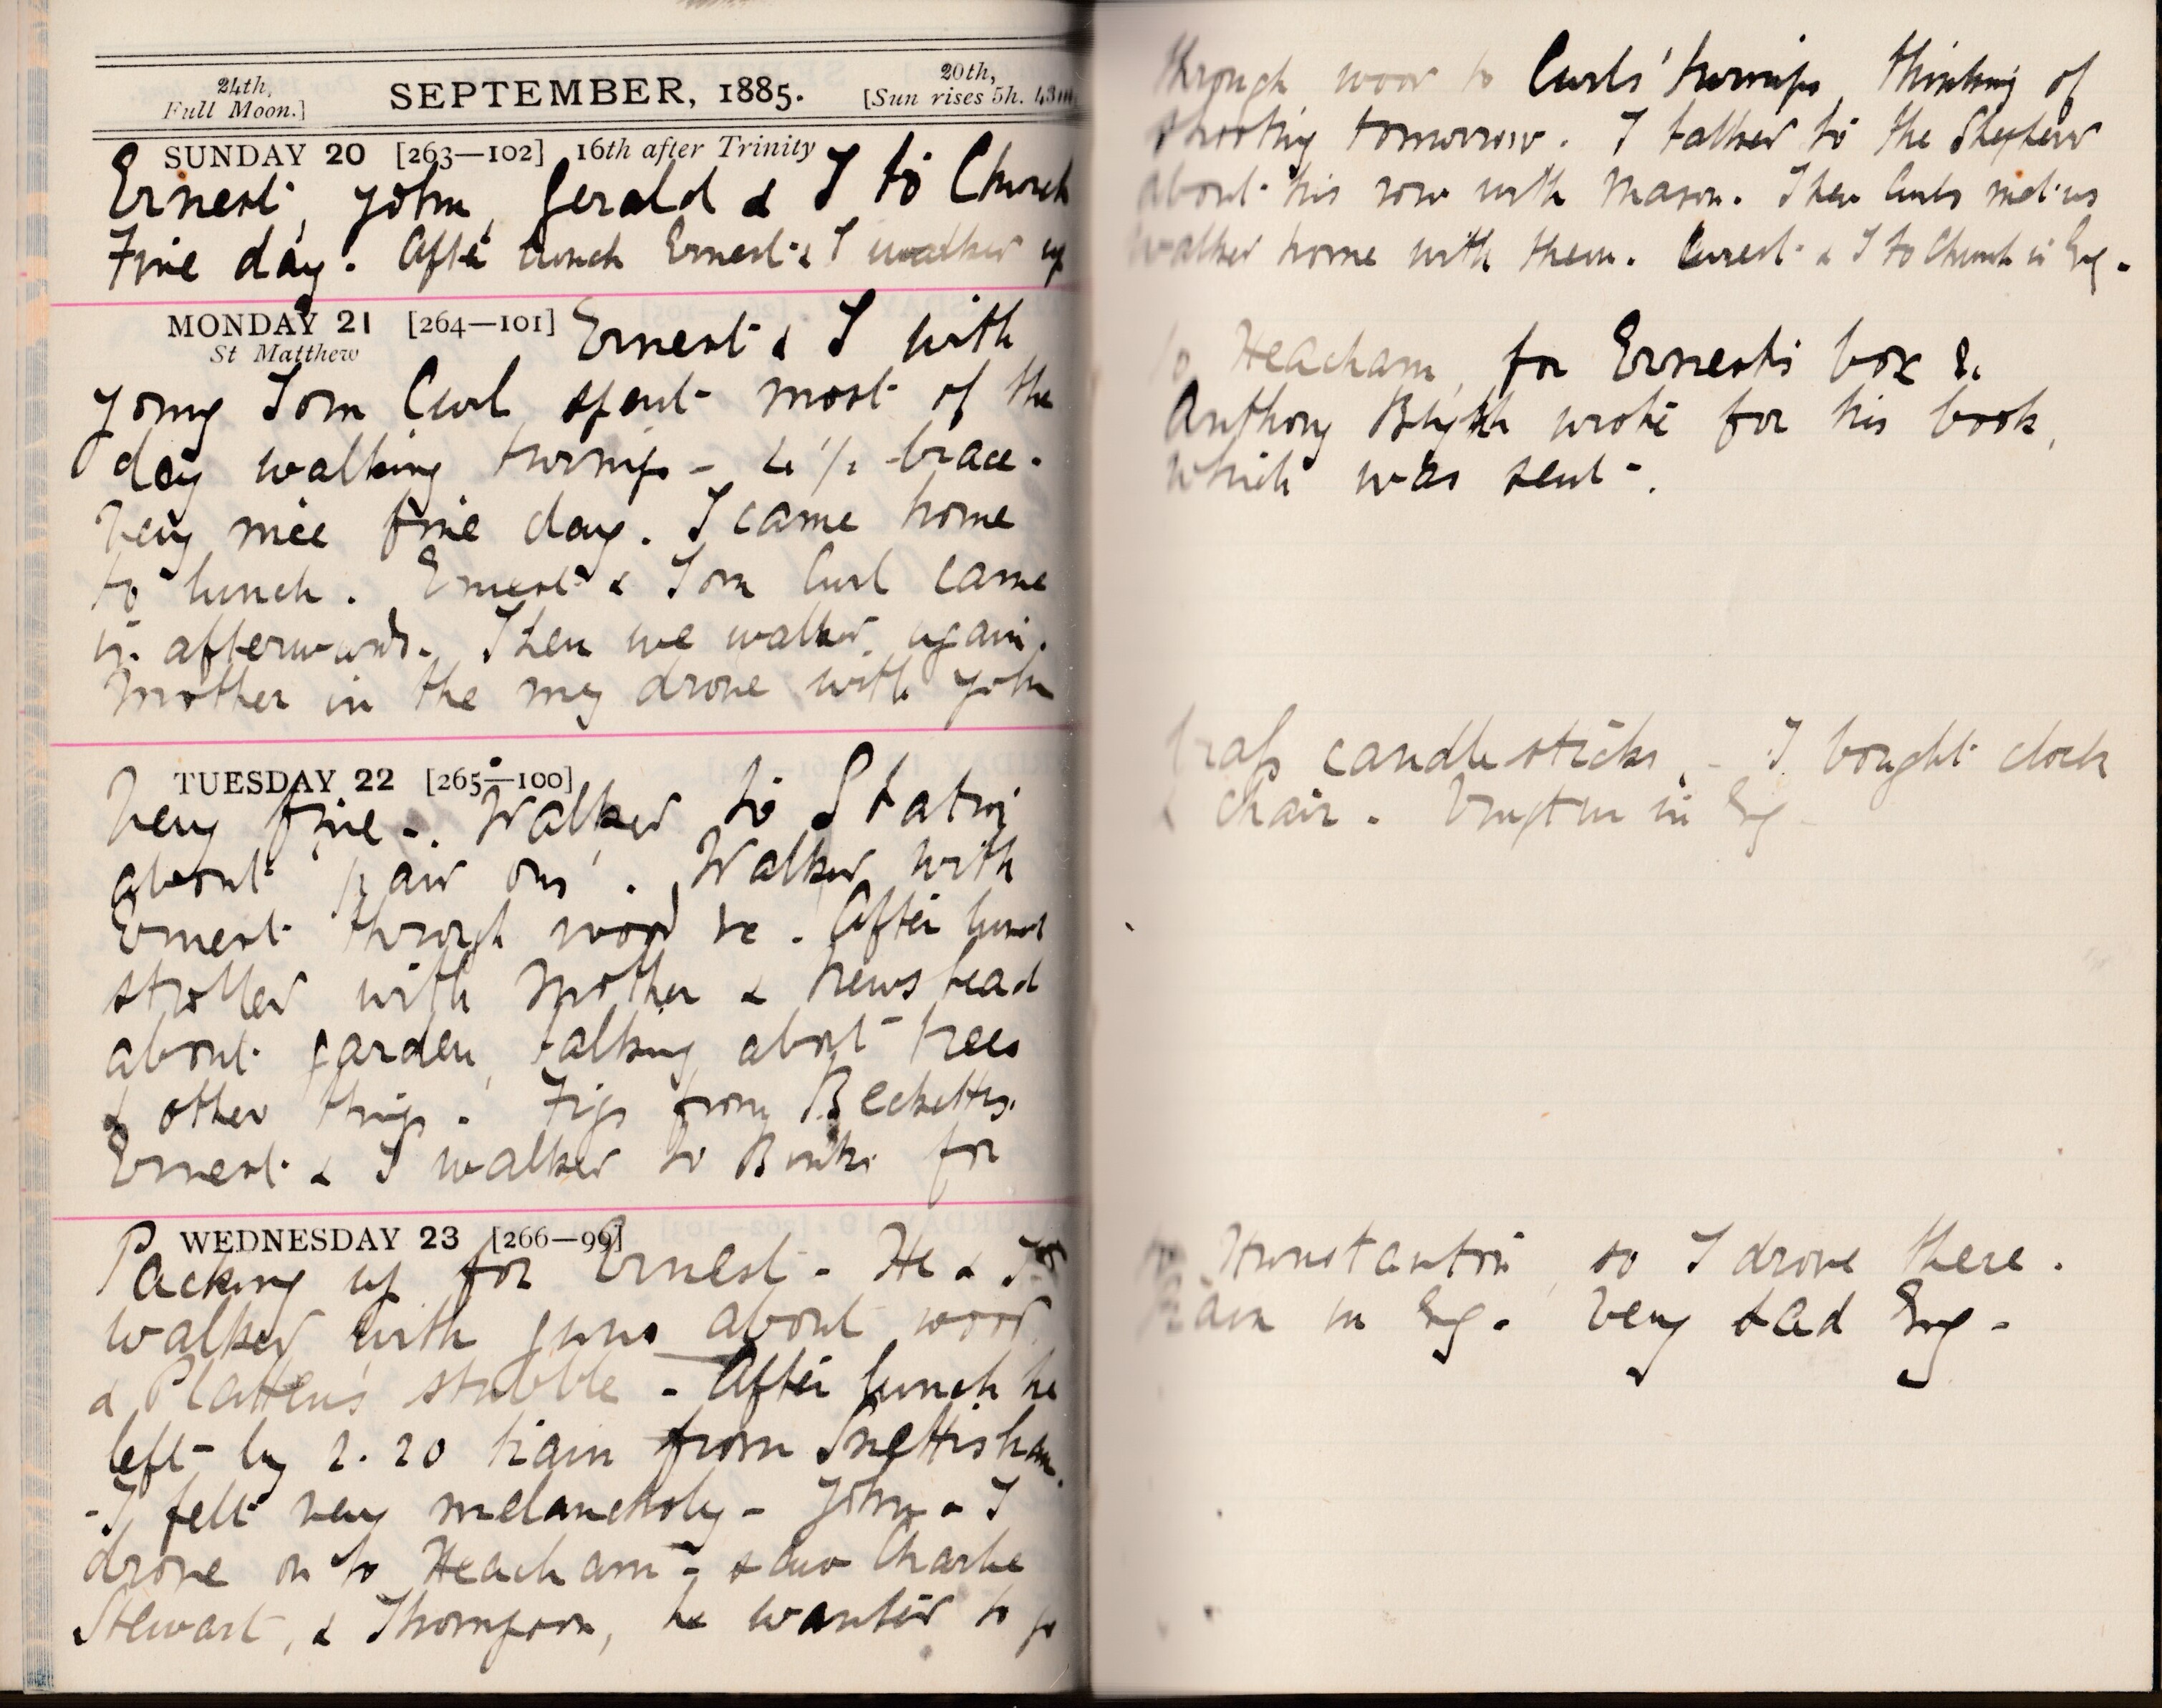 24th,
Full Moon.]
SEPTEMBER, 1885.
20th,
[Sun rises 5h. 43m
SUNDAY 20 [263—102] 16th after Trinity
Ernest, John, Gerald & I to Church
Fine day. After lunch Ernest & I walked up
through wood to Curls' turnips, thinking of
shooting tomorrow. I talked to the Shepherd
about his row with Mason. Then Curls met us
walked home with them. Ernest & I to Church in Evg.
MONDAY 21 [264—101]
St Matthew
Ernest & I with
young Tom Curl spent most of the
day walking turnips - 4 1/2 brace.
Very nice fine day. I came home
to lunch. Ernest & Tom Curl came
in afterwards. Then we walked again.
Mother in the mg drove with John
to Heacham, for Ernest's box &
Anthony Blyth wrote for his book,
which was sent.
TUESDAY 22 [265—100]
Very fine. Walked to Station
about . Walked with
Ernest through wood &c. After lunch
strolled with Mother & Newstead
about garden, talking about trees
& other things. Figs from Becketts.
Ernest & I walked to for
brass candlesticks, - I bought clock
& chair. in Evg.
WEDNESDAY 23 [266—99]
Packing up for Ernest - He & I
walked with guns about wood
& Platten's stubble - After lunch he
left by 2.20 train from Snettisham.
- I felt very melancholy - John & I
drove on to Heacham - saw Charlie
Stewart, & Thompson, he wanted to go
to Hunstanton, so I drove there.
Rain in Evg. Very sad Evg.